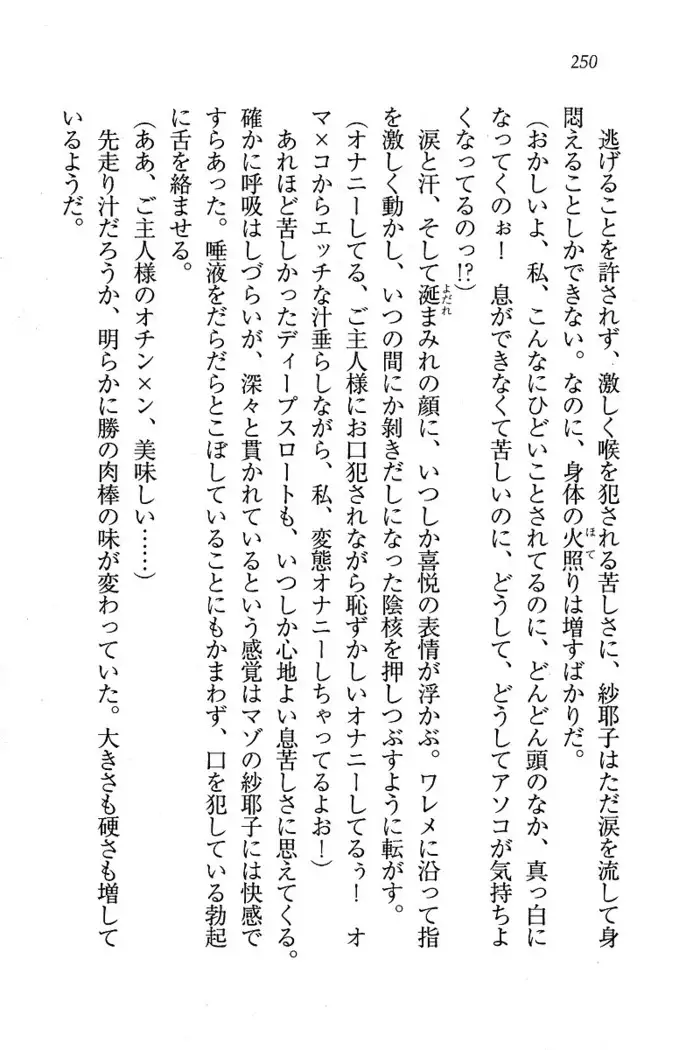 250
逃げることを許されず、激しく喉を犯される苦しさに、紗耶子はただ涙を流して身
悶えることしかできない。なのに、身体の火照りは増すばかりだ。
（おかしいよ、私、こんなにひどいことされてるのに、どんどん頭のなか、真っ白に
なってくのぉ！　息ができなくて苦しいのに、どうして、どうしてアソコが気持ちよ
くなってるのっ!?）
涙と汗、そして涎まみれの顔に、いつしか喜悦の表情が浮かぶ。ワレメに沿って指
を激しく動かし、いつの間にか剝きだしになった陰核を押しつぶすように転がす。
（オナニーしてる、ご主人様にお口犯されながら恥ずかしいオナニーしてるぅ！　オ
マ×コからエッチな汁垂らしながら、私、変態オナニーしちゃってるよお！）
あれほど苦しかったディープスロートも、いつしか心地よい息苦しさに思えてくる。
確かに呼吸はしづらいが、深々と貫かれているという感覚はマゾの紗耶子には快感で
すらあった。唾液をだらだらとこぼしていることにもかまわず、口を犯している勃起
に舌を絡ませる。
（ああ、ご主人様のオチン×ン、美味しい……）
先走り汁だろうか、明らかに勝の肉棒の味が変わっていた。大きさも硬さも増して
いるようだ。